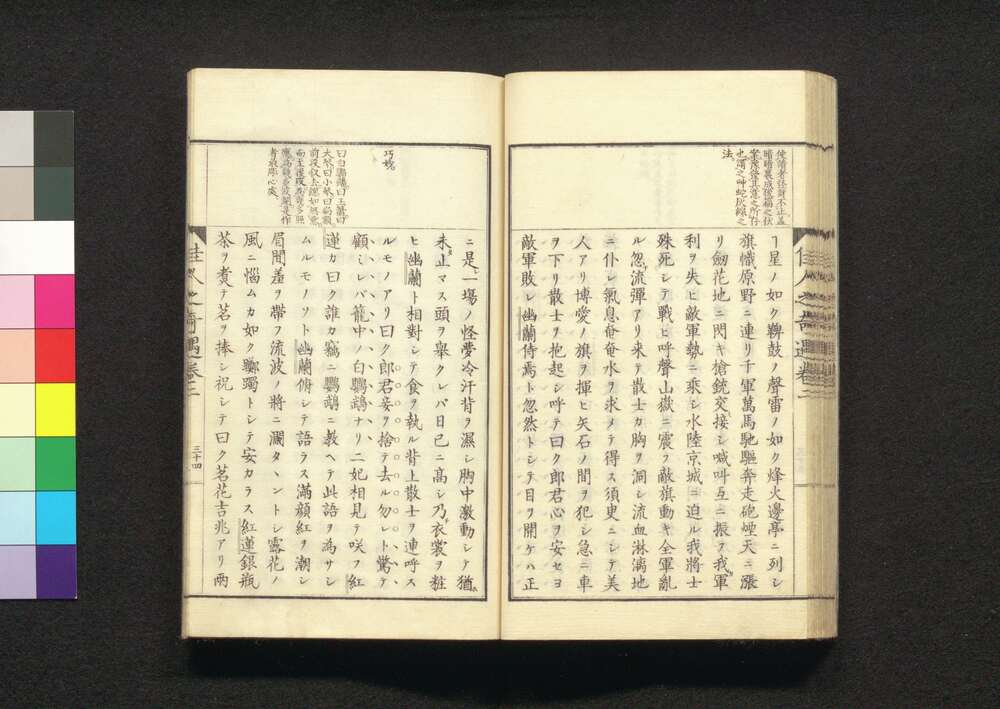 使讀者往前不止蓋
暗暗裏成後篇之伏
案
也
法
ヿ星ノ如ク鞞鼓ノ聲雷ノ如ク烽火邊亭ニ列シ
旗幟原野ニ連リ千軍萬馬馳驅奔走砲煙天ニ漲
リ劔花地ニ閃キ槍銃交接シ喊叫互ニ振ヲ我軍
利ヲ失ヒ敵軍勢ニ乘シ水陸京城ニ迫ル我將士
殊死シテ戰ヒ呼聲山嶽ニ震ヲ敵旗動キ全軍亂
ル忽流彈アリ来テ散士カ胸ヲ洞シ流血淋漓地
ニ仆レ氣息奄奄水ヲ求メテ得ス須臾ニシテ美
人アリ博愛ノ旗ヲ揮ヒ矢石ノ間ヲ犯シ急ニ車
ヲ下リ散士ヲ抱起シ呼テ曰ク郎君心ヲ安セヨ
敵軍敗レ幽蘭侍焉ト忽然トシテ目ヲ開ケハ正
佳人之奇遇卷二
巧媿
曰白鸚鵡曰玉
ニ是一塲ノ怪夢冷汗背ヲ濕シ胸中激動シテ猶
未止マス頭ヲ擧クレバ日已ニ高シ乃衣裳ヲ粧
ヒ幽蘭ト相對シテ食ヲ執ル背上散士ヲ連呼ス
ルモノアリ曰ク郎君妾ヲ捨テ去ル勿レト驚テ
顧ミレバ籠中ノ白鸚鵡ナリ二妃相見テ咲フ紅
蓮カ曰ク誰カ竊ニ鸚鵡ニ教ヘテ此語ヲ為サシ
ムルモノソト幽蘭俯シテ語ラス滿顔紅ヲ潮シ
眉間羞ヲ帶フ流波ノ將ニ瀾タヽントシ露花ノ
風ニ惱ムカ如ク躑躅トシテ安カラス紅蓮銀瓶
茶ヲ煑テ茗ヲ捧シ祝シテ曰ク茗花吉兆アリ兩
佳人之奇遇卷二
三十四